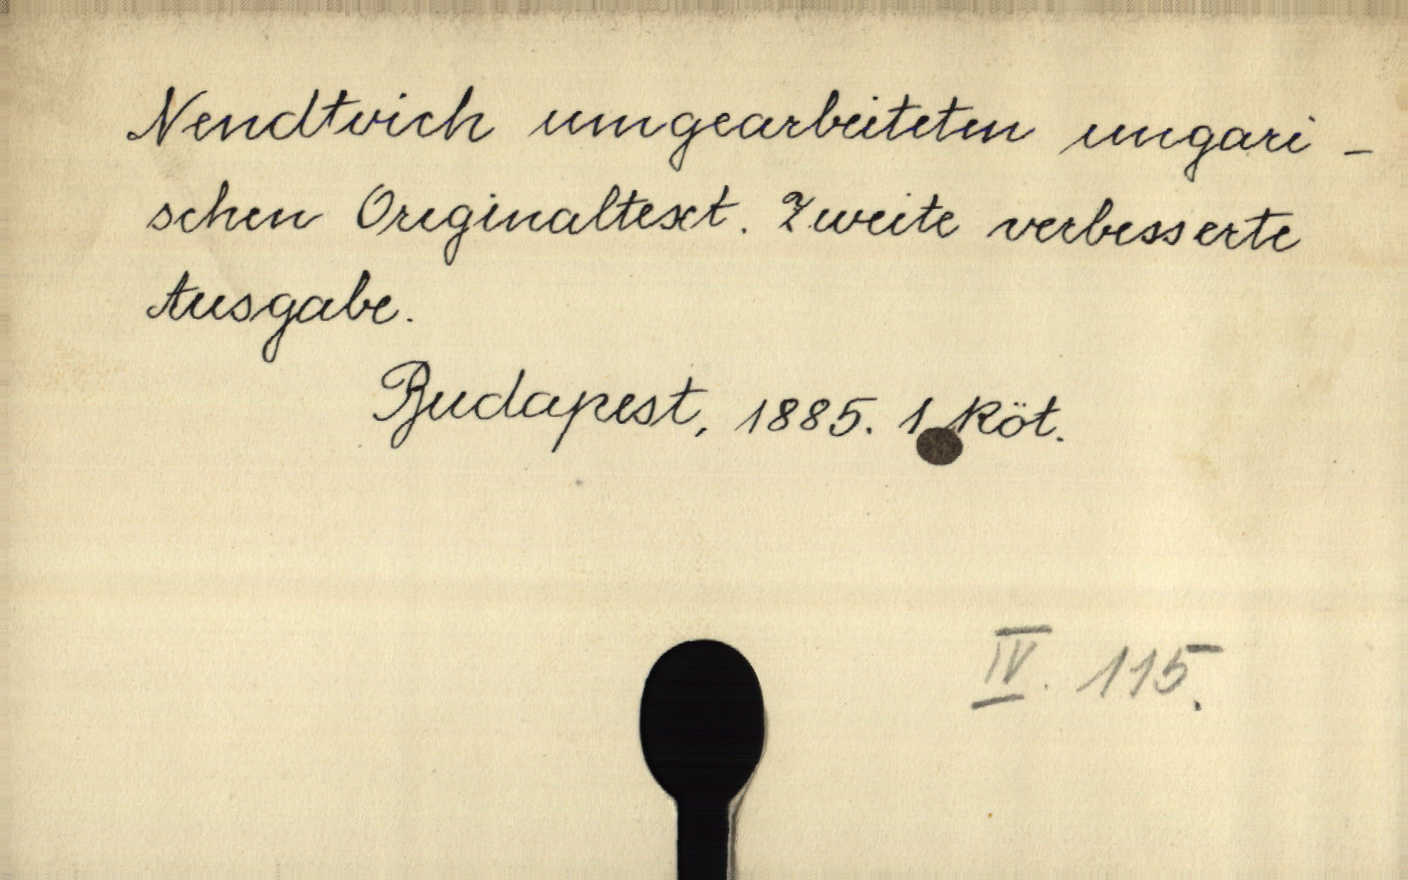 Nendtvich umgearbeiteten ungari-
schen Originaltext. Zweite verbesserte
Ausgabe.
Budapest, 1885. 1 köt.
IV. 115.